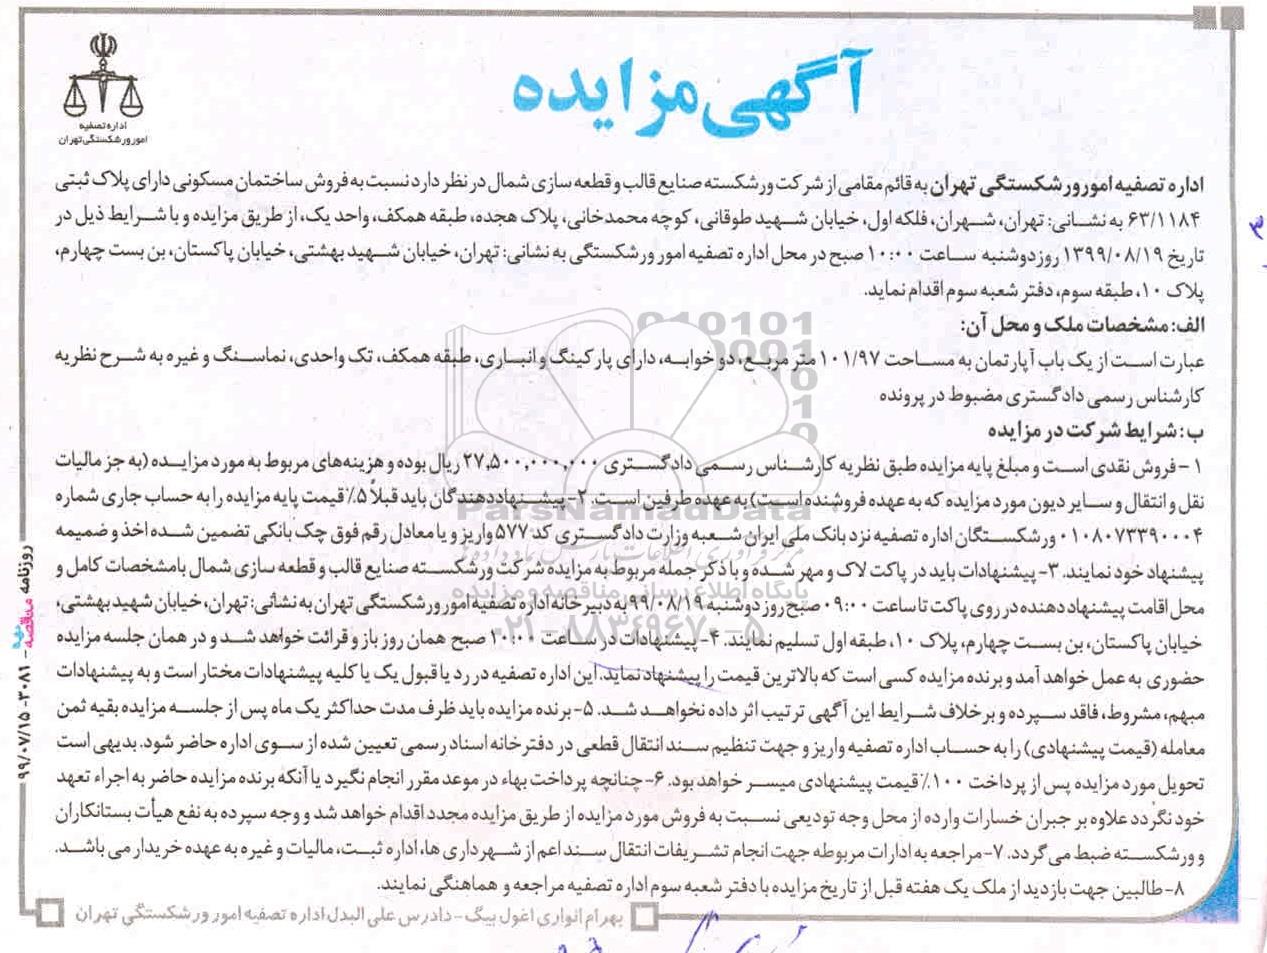 آگهی مزایده
اداره تصفیه
امور ورشکستگی تهران
اداره تصفیه امور ورشکستگی تهران به قائم مقامی از شرکت ورشکسته صنایع قالب و قطعه سازی شمال در نظر دارد نسبت به فروش ساختمان مسکونی دارای پلاک ثبتی
۶۳/۱۱۸۴ به نشانی: تهران، شهران، فلکه اول، خیابان شهید طوقانی، کوچه محمدخانی، پلاک هجده، طبقه همکف، واحد یک، از طریق مزایده و با شرایط ذیل در
تاریخ ۱۳۹۹/۰۸/۱۹ روز دوشنبه ساعت ۱۰:۰۰ صبح در محل اداره تصفیه امور ورشکستگی به نشانی: تهران، خیابان شهید بهشتی، خیابان پاکستان، بن بست چهارم،
پلاک ۱۰، طبقه سوم، دفتر شعبه سوم اقدام نماید.
الف: مشخصات ملک و محل آن:
عبارت است از یک باب آپارتمان به مساحت ۱۰۱/۹۷ متر مربع، دو خوابه، دارای پارکینگ و انباری، طبقه همکف، تک واحدی، نماسنگ و غیره به شرح نظریه
کارشناس رسمی دادگستری مضبوط در پرونده
ب: شرایط شرکت در مزایده
۱- فروش نقدی است و مبلغ پایه مزایده طبق نظریه کارشناس رسمی دادگستری ۲۷,۵۰۰,۰۰۰,۰۰۰ ریال بوده و هزینه‌های مربوط به مورد مزایده (به جز مالیات
نقل و انتقال و سایر دیون مورد مزایده که به عهده فروشنده است) به عهده طرفین است. ۲- پیشنهاد دهندگان باید قبلاً ۵٪ قیمت پایه مزایده را به حساب جاری شماره
۰۱۰۸۰۷۳۳۹۰۰۰۴ ورشکستگان اداره تصفیه نزد بانک ملی ایران شعبه وزارت دادگستری کد ۵۷۷ واریز و یا معادل رقم فوق چک بانکی تضمین شده اخذ و ضمیمه
پیشنهاد خود نمایند. ۳- پیشنهادات باید در پاکت لاک و مهر شده و با ذکر جمله مربوط به مزایده شرکت ورشکسته صنایع قالب و قطعه سازی شمال با مشخصات کامل و
محل اقامت پیشنهاد دهنده در روی پاکت تا ساعت ۰۹:۰۰ صبح روز دوشنبه ۹۹/۰۸/۱۹ به دبیرخانه اداره تصفیه امور ورشکستگی تهران به نشانی: تهران، خیابان شهید بهشتی،
خیابان پاکستان، بن بست چهارم، پلاک ۱۰، طبقه اول تسلیم نمایند. ۴- پیشنهادات در ساعت ۱۰:۰۰ صبح همان روز باز و قرائت خواهد شد و در همان جلسه مزایده
حضوری به عمل خواهد آمد و برنده مزایده کسی است که بالاترین قیمت را پیشنهاد نماید. این اداره تصفیه در رد یا قبول یک یا کلیه پیشنهادات مختار است و به پیشنهادات
مبهم، مشروط، فاقد سپرده و بر خلاف شرایط این آگهی ترتیب اثر داده نخواهد شد. ۵- برنده مزایده باید ظرف مدت حداکثر یک ماه پس از جلسه مزایده بقیه ثمن
معامله (قیمت پیشنهادی) را به حساب اداره تصفیه واریز و جهت تنظیم سند انتقال قطعی در دفترخانه اسناد رسمی تعیین شده از سوی اداره حاضر شود. بدیهی است
تحویل مورد مزایده پس از پرداخت ۱۰۰٪ قیمت پیشنهادی میسر خواهد بود. ۶- چنانچه پرداخت بهاء در موعد مقرر انجام نگیرد یا آنکه برنده مزایده حاضر به اجراء تعهد
خود نگردد علاوه بر جبران خسارات وارده از محل وجه تودیعی نسبت به فروش مورد مزایده از طریق مزایده مجدد اقدام خواهد شد و وجه سپرده به نفع هیأت بستانکاران
و ورشکسته ضبط می گردد. ۷- مراجعه به ادارات مربوطه جهت انجام تشریفات انتقال سند اعم از شهرداری ها، اداره ثبت، مالیات و غیره به عهده خریدار می باشد.
۸- طالبین جهت بازدید از ملک یک هفته قبل از تاریخ مزایده با دفتر شعبه سوم اداره تصفیه مراجعه و هماهنگی نمایند.
بهرام انواری اغول بیگ - دادرس علی البدل اداره تصفیه امور ورشکستگی تهران
روزنامه مناقصه مزایده - ۳۰۸۱ - ۹۹/۰۷/۱۵
ParsNamadData
پایگاه اطلاع رسانی مناقصه و مزایده
۰۲۱-۸۸۳۴۹۶۷۰-۵